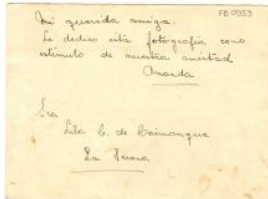 FB 0953
Mi querida amiga.
Le dedico esta fotografía como
estimulo de nuestra amistad
Ananda
Sra
Lila C. de
La Serena